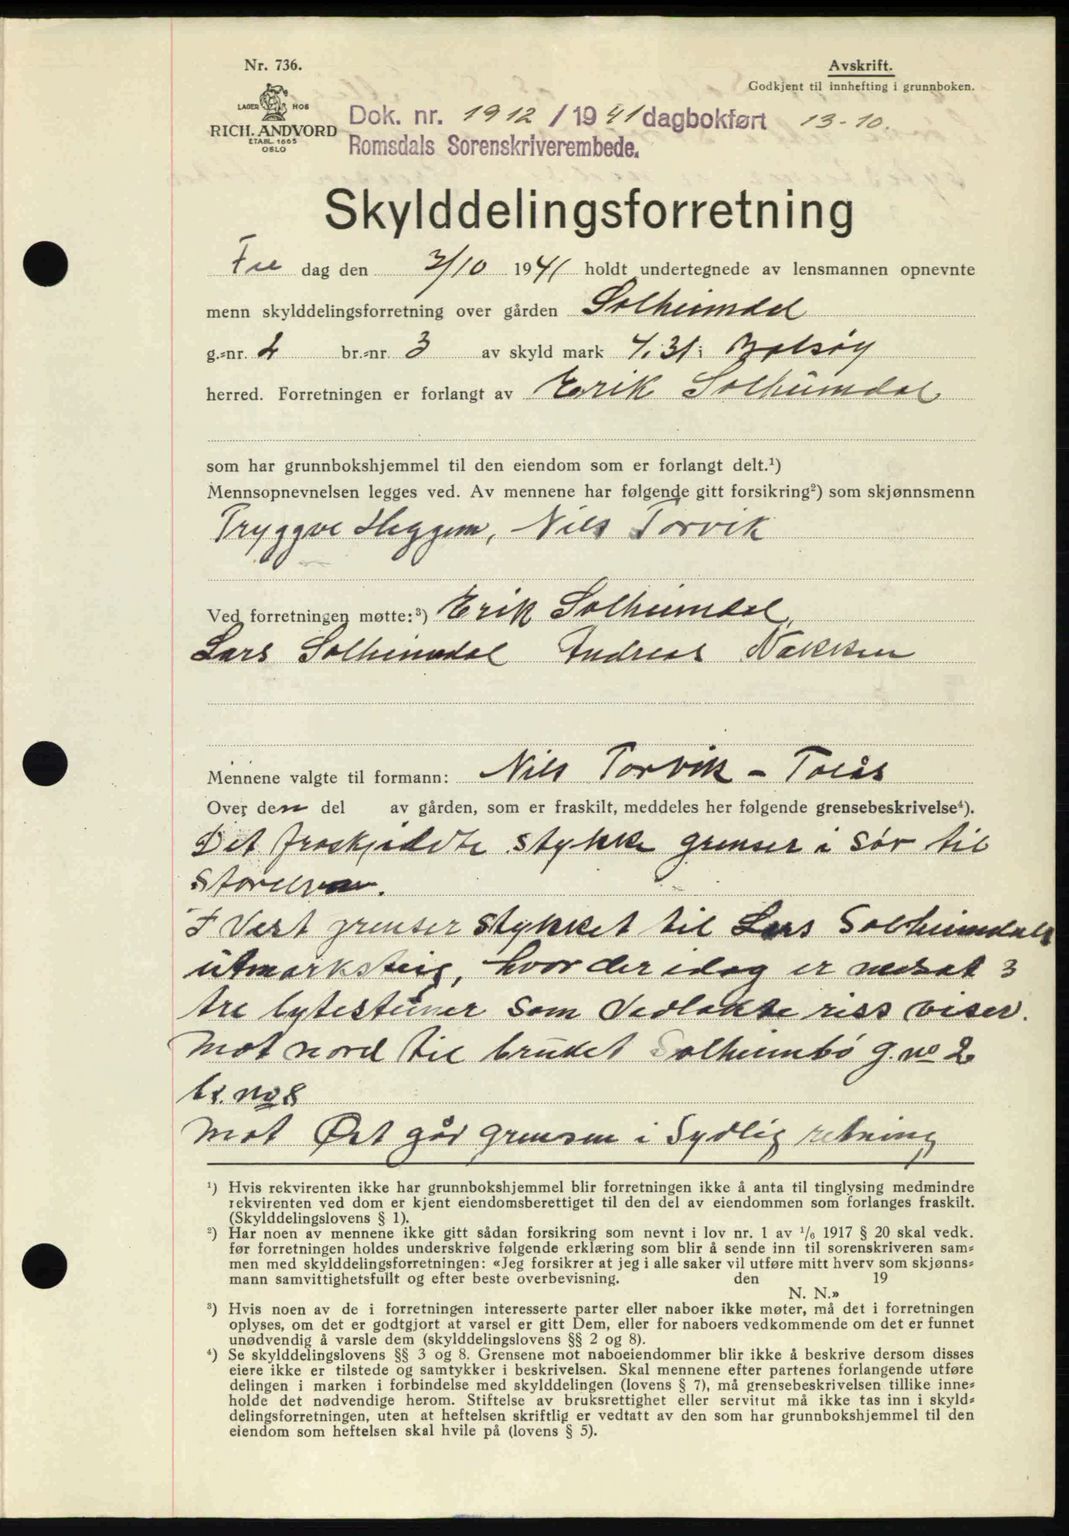 Nr. 736.
Avskrift.
Godkjent til innhefting i grunnboken.
LAGER HOS
RICH. ANDVORD
ETABL. 1865
OSLO
Dok. nr. 1912 / 1941 dagbokført 13-10.
Romsdals Sorenskriverembede.
Skylddelingsforretning
Fre dag den 3/10 1941 holdt undertegnede av lensmannen opnevnte
menn skylddelingsforretning over gården Solheimdal
g.=nr. 2 br.=nr. 3 av skyld mark 4.31 i Bolsøy
herred. Forretningen er forlangt av Erik Solheimdal
som har grunnbokshjemmel til den eiendom som er forlangt delt.¹)
Mennsopnevnelsen legges ved. Av mennene har følgende gitt forsikring²) som skjønnsmenn
Tryggve Heggem, Nils Torvik
Ved forretningen møtte:³) Erik Solheimdal,
Lars Solheimdal Andreas Nakken
Mennene valgte til formann: Nils Torvik - Toås
Over den del av gården, som er fraskilt, meddeles her følgende grensebeskrivelse⁴).
Det fraskjidte stykke grenser i Sør til
Storelven.
I Vest grenser stykket til Lars Solheimdals
utmarksteig, hvor der idag er nedsat 3
tre bytesteiner som vedlakte riss viser.
Mot nord til bruket Solheimbø g. no 2
br. no 8
Mot Øst går grensen i Sydlig retning
¹) Hvis rekvirenten ikke har grunnbokshjemmel blir forretningen ikke å anta til tinglysing medmindre
rekvirenten ved dom er kjent eiendomsberettiget til den del av eiendommen som forlanges fraskilt.
(Skylddelingslovens § 1).
²) Har noen av mennene ikke gitt sådan forsikring som nevnt i lov nr. 1 av ¹/₆ 1917 § 20 skal vedk.
før forretningen holdes underskrive følgende erklæring som blir å sende inn til sorenskriveren sam=
men med skylddelingsforretningen: «Jeg forsikrer at jeg i alle saker vil utføre mitt hverv som skjønns=
mann samvittighetsfullt og efter beste overbevisning. den 19
N. N.»
³) Hvis noen av de i forretningen interesserte parter eller naboer ikke møter, må det i forretningen
oplyses, om det er godtgjort at varsel er gitt Dem, eller for naboers vedkommende om det er funnet
unødvendig å varsle dem (skylddelingslovens §§ 2 og 8).
⁴) Se skylddelingslovens §§ 3 og 8. Grensene mot naboeiendommer blir ikke å beskrive dersom disses
eiere ikke er tilstede og samtykker i beskrivelsen. Skal mennene efter partenes forlangende utføre
delingen i marken i forbindelse med skylddelingen (lovens § 7), må grensebeskrivelsen tillike inne=
holde det nødvendige herom. Stiftelse av bruksrettighet eller servitut må ikke tas inn i skyld=
delingsforretningen, uten at heftelsen skriftlig er vedtatt av den som har grunnbokshjemmel til den
eiendom som heftelsen skal hvile på (lovens § 5).